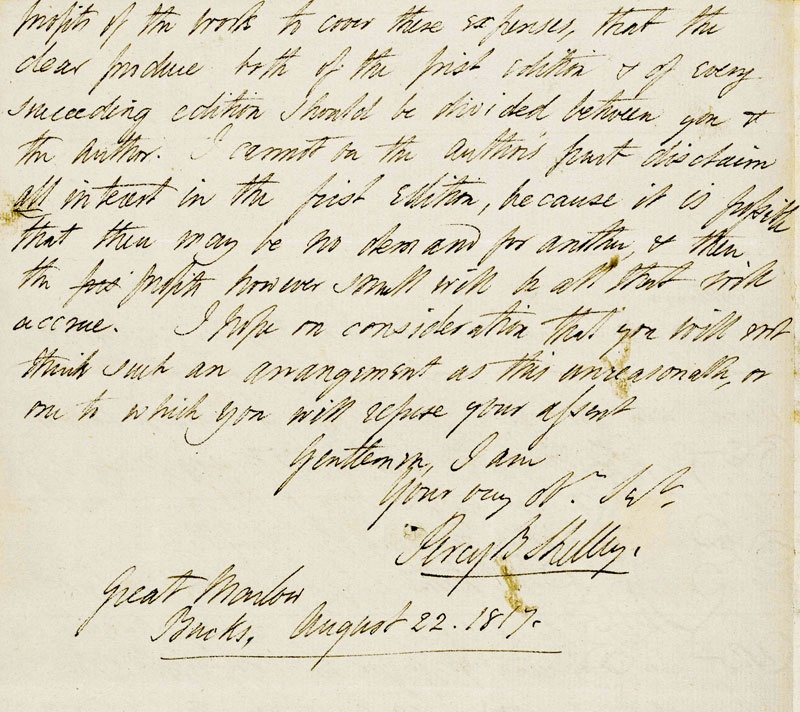 profits of the work to cover these expenses, that the
clear produce both of the first edition & of every
succeeding edition should be divided between you &
the author. I cannot on the author's part disclaim
all interest in the first edition, because it is possible
that there may be no demand for another & then
the profits however small will be all that will
accrue. I hope on consideration that you will not
think such an arrangement as this unreasonable, or
one to which you will refuse your assent
Gentlemen, I am
Your very Obt. Servt.
Percy B Shelley.
Great Marlow
Bucks, August 22. 1817.